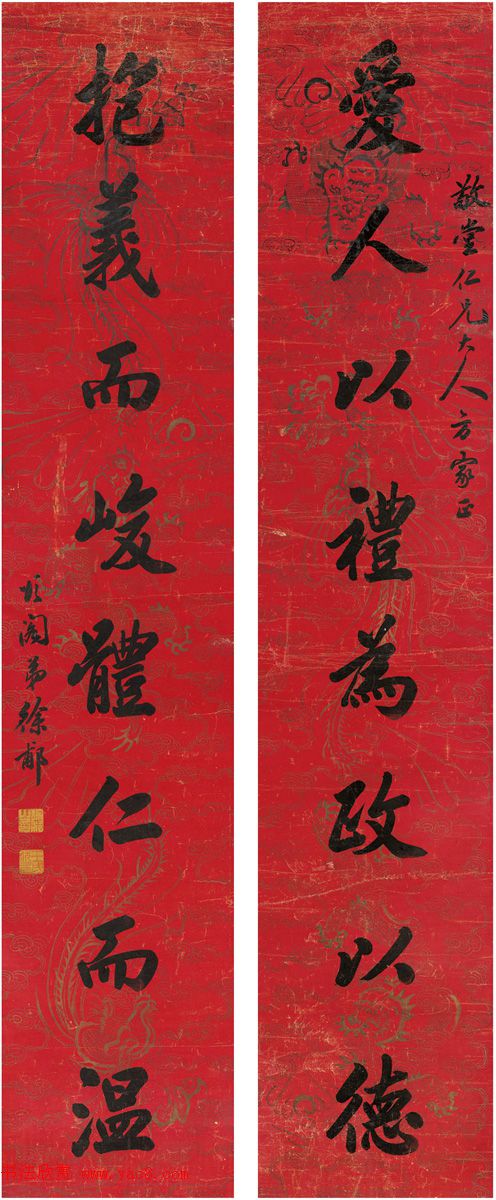 敬堂仁兄大人方家正
愛人以禮為政以德
抱義而峻體仁而温
頌閣弟徐郙
www.yac8.com